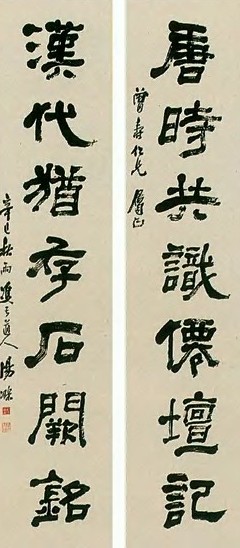 唐時共識僊壇記
仁兄屬正
漢代猶存石闕銘
辛巳秋雨雙于道人湯滌